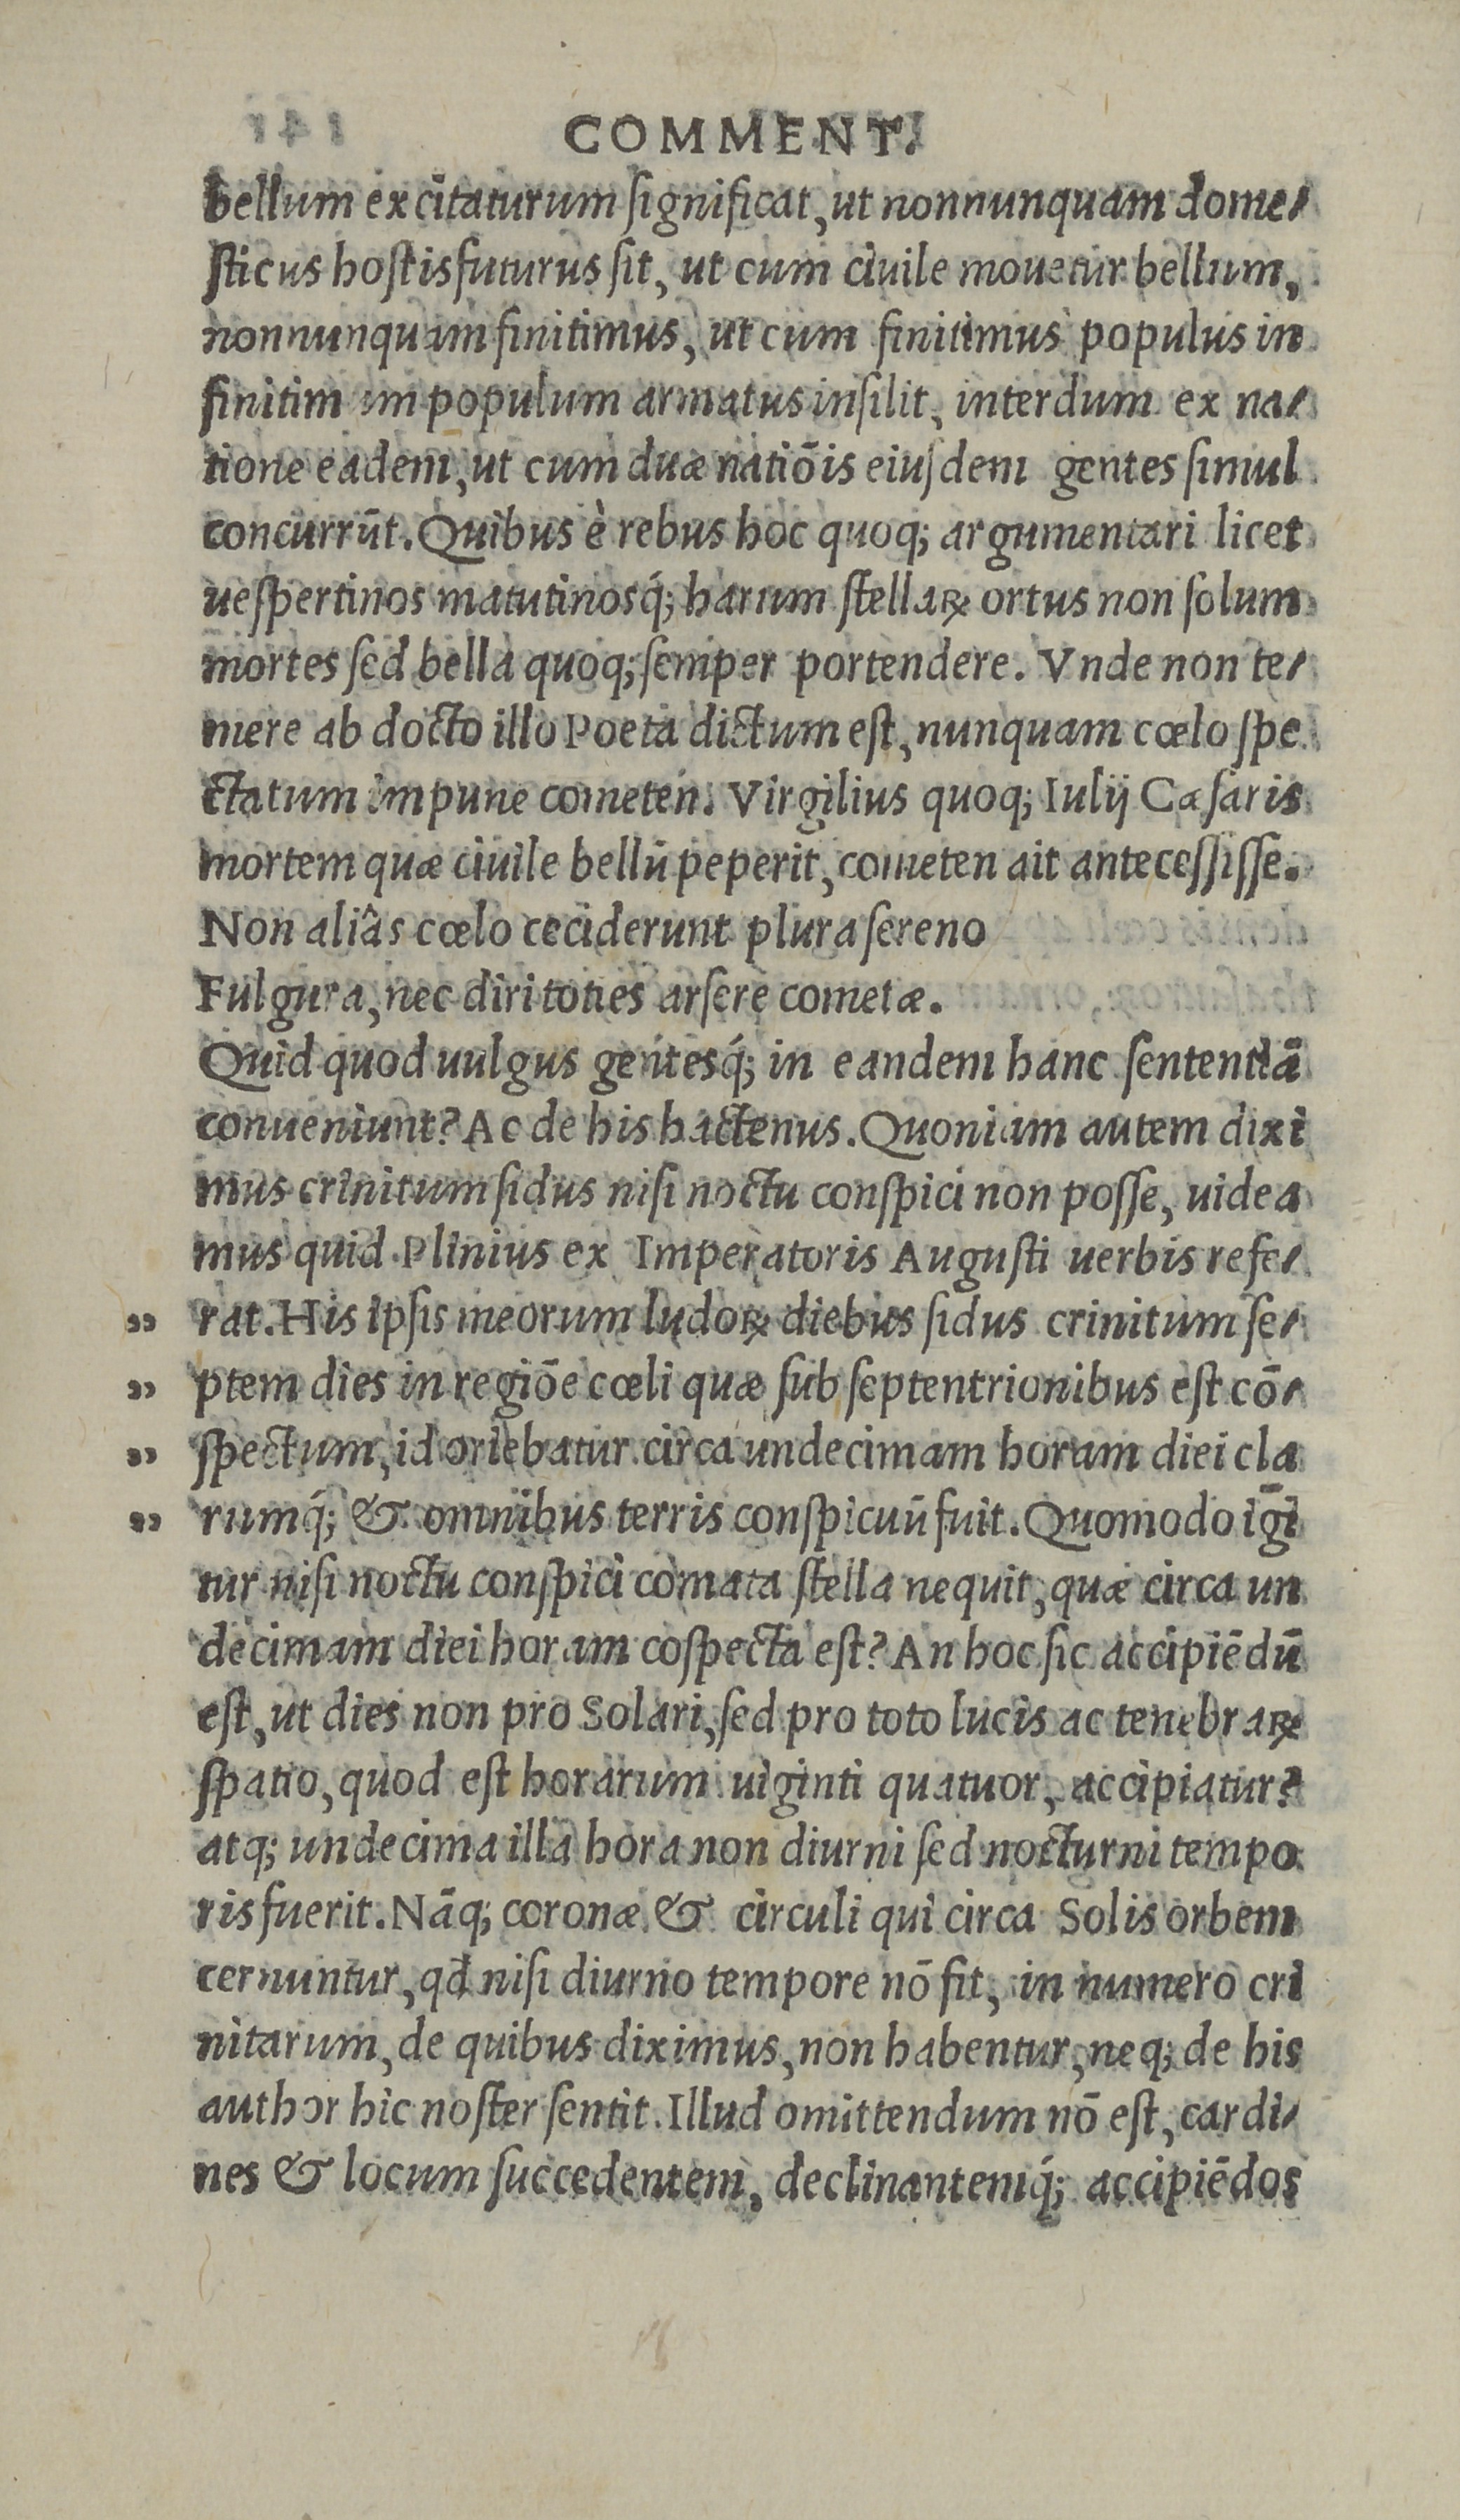 COMMENT.
bellum excitaturum ſignificat, ut nonnunquam dome⸗
ſticus hoſtis futurus ſit, ut cum ciuile mouetur bellum,
nonnunquam finitimus, ut cum finitimus populus in
finitimum populum armatus inſilit, interdum ex na⸗
tione eadem, ut cum duæ natiōis eiuſdem gentes ſimul
concurrūt. Quibus è rebus hoc quoq; argumentari licet
ueſpertinos matutinosq́; harum ſtellaꝝ ortus non ſolum
mortes ſed bella quoq; ſemper portendere. Vnde non te⸗
mere ab docto illo Poeta dictum eſt, nunquam cœlo ſpe
ctatum impune cometen. Virgilius quoq; Iulij Cæſaris
mortem quæ ciuile bellū peperit, cometen ait anteceſſiſſe.
Non aliâs cœlo ceciderunt plura ſereno
Fulgura, nec diri toties arſere cometæ.
Quid quod uulgus gentesq́; in eandem hanc ſententiā
conueniunt? Ac de his hactenus. Quoniam autem dixi
mus crinitum ſidus niſi noctu conſpici non poſſe, uidea
mus quid Plinius ex Imperatoris Auguſti uerbis refe⸗
„ rat. His ipſis meorum ludoꝝ diebus ſidus crinitum ſe⸗
„ ptem dies in regiōe cœli quæ ſub ſeptentrionibus eſt cō⸗
„ ſpectum, id oriebatur circa undecimam horam diei cla
„ rumq́; & omnibus terris conſpicuū fuit. Quomodo iḡi
tur niſi noctu conſpici comata ſtella nequit, quæ circa un
decimam diei horam coſpecta eſt? An hoc ſic accipiēdū
eſt, ut dies non pro Solari, ſed pro toto lucis ac tenebraꝝ
ſpatio, quod eſt horarum uiginti quatuor, accipiatur?
atq; undecima illa hora non diurni ſed nocturni tempo
ris fuerit. Nāq; coronæ & circuli qui circa Solis orbem
cernuntur, qđ niſi diurno tempore nō fit, in numero cri
nitarum, de quibus diximus, non habentur, neq; de his
author hic noſter ſentit. Illud omittendum nō eſt, cardi⸗
nes & locum ſuccedentem, declinantemq́; accipiēdos